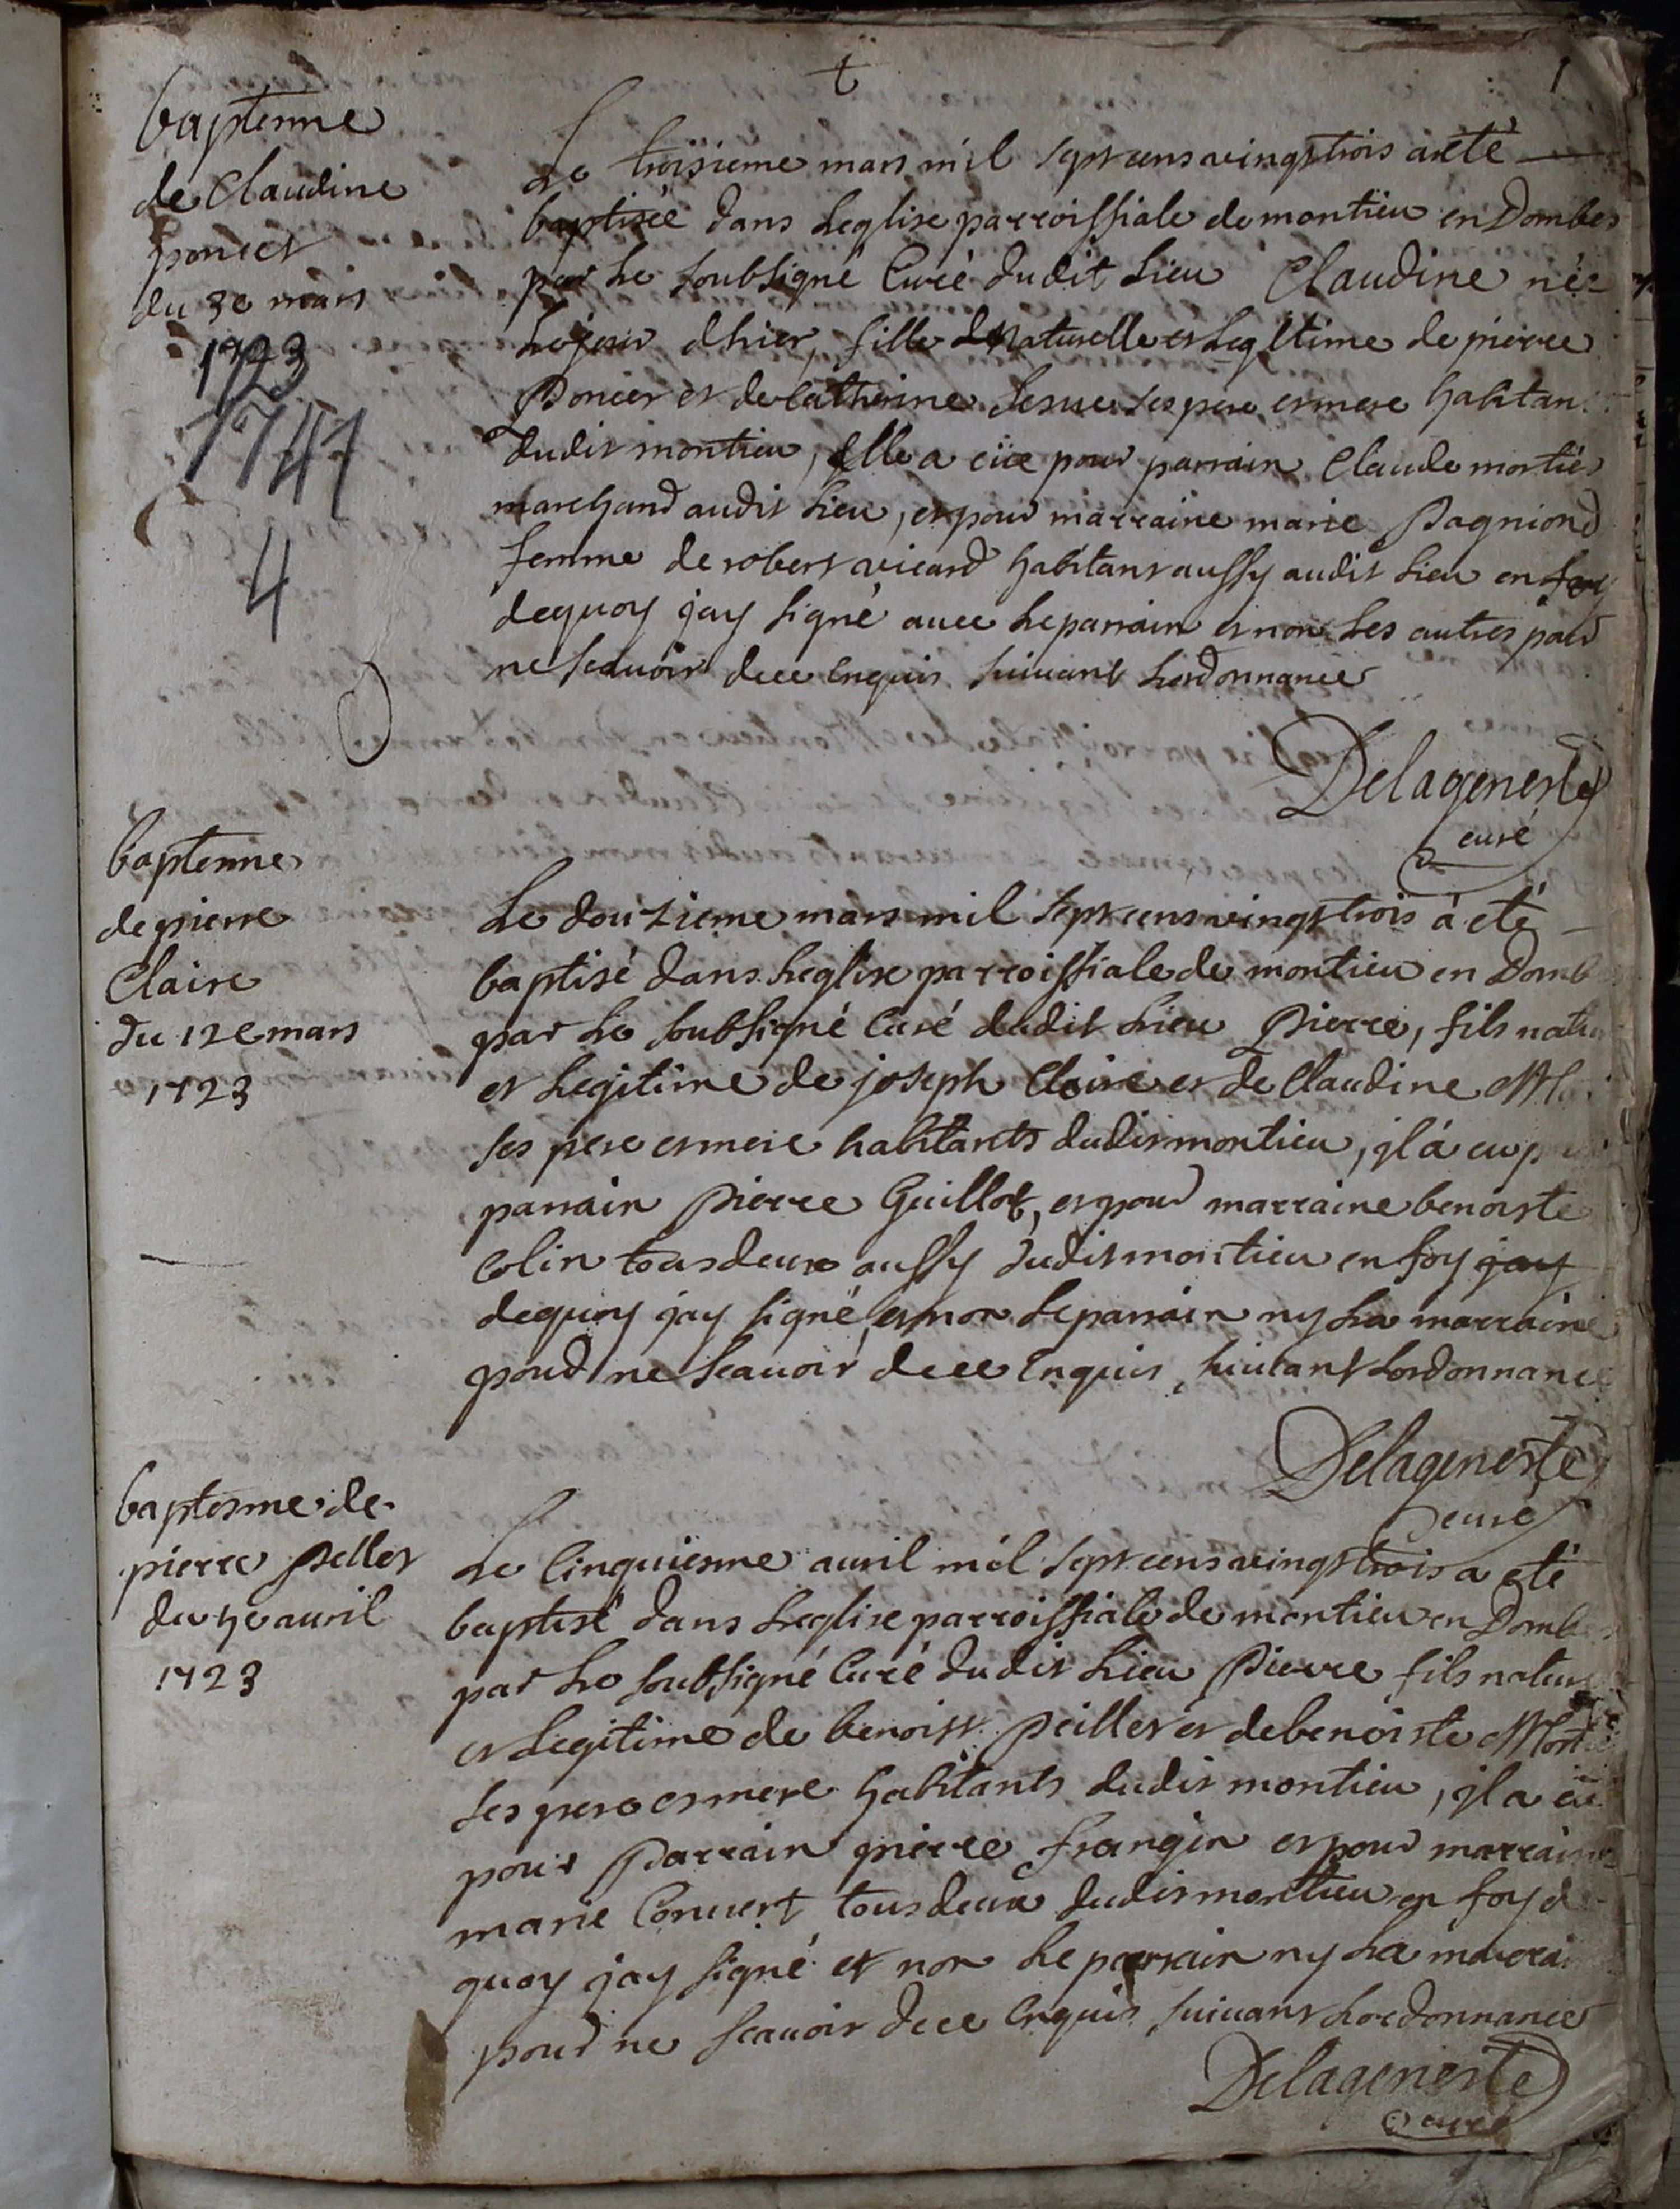 t
1
baptenne
de Claudine
poncet
du 3e mars
1723
1741
4
Le troisieme mars mil sept cens vingt trois a eté
baptisée dans Leglise parroissiale de montieu en Dombes
par Le soubsigné Curé dudit Lieu Claudine née
Le jour dhier, fille naturelle et Legitime de pierre
Poncet et de Catherine ses pere et mere habitans
dudit montieu, Elle a eüe pour parrain Claude mortier
marchand audit Lieu, et pour marraine marie Pagniond
femme de robert vicard habitant aussy audit Lieu en foy
dequoy jay signé avec Le parrain et non Les autres pour
ne scauoir de ce Enquis suiuant Lordonnance
Delageneste
curé
baptenne
de pierre
Claire
du 12e mars
1723
Le douzieme mars mil sept cens vingt trois à eté
baptisé dans Leglise parroissiale de montieu en Domb
par Le soubsigné Curé dudit Lieu Pierre, fils natu
et Legitime de joseph Claire et de Claudine
ses pere et mere habitants dudit montieu, jl à eu p
parrain Pierre Guillot, et pour marraine benoiste
Colin tous deux aussy dudit montieu en foy jay
dequoy jay signé, et non Le parrain ny La marraine
pour ne scauoir de ce Enquis, suiuant Lordonnance
Delageneste
curé
baptesme de
pierre Pellet
du 5e auril
1723
Le Cinquiesme auril mil sept cens vingt trois a eté
baptisé dans Leglise parroissiale de montieu en Domb
par Le soubsigné Curé dudit Lieu Pierre fils natur
et Legitime de benoist Peillet et de benoiste
ses pere et mere habitants dudit montieu, jl a eu
pour Parrain pierre frangin et pour marraine
marie Conuert tous deux dudit montieu en foy de
quoy jay signé et non Le parrain ny La marrai
pour ne scauoir de ce Enquis suiuant Lordonnance
Delageneste
curé